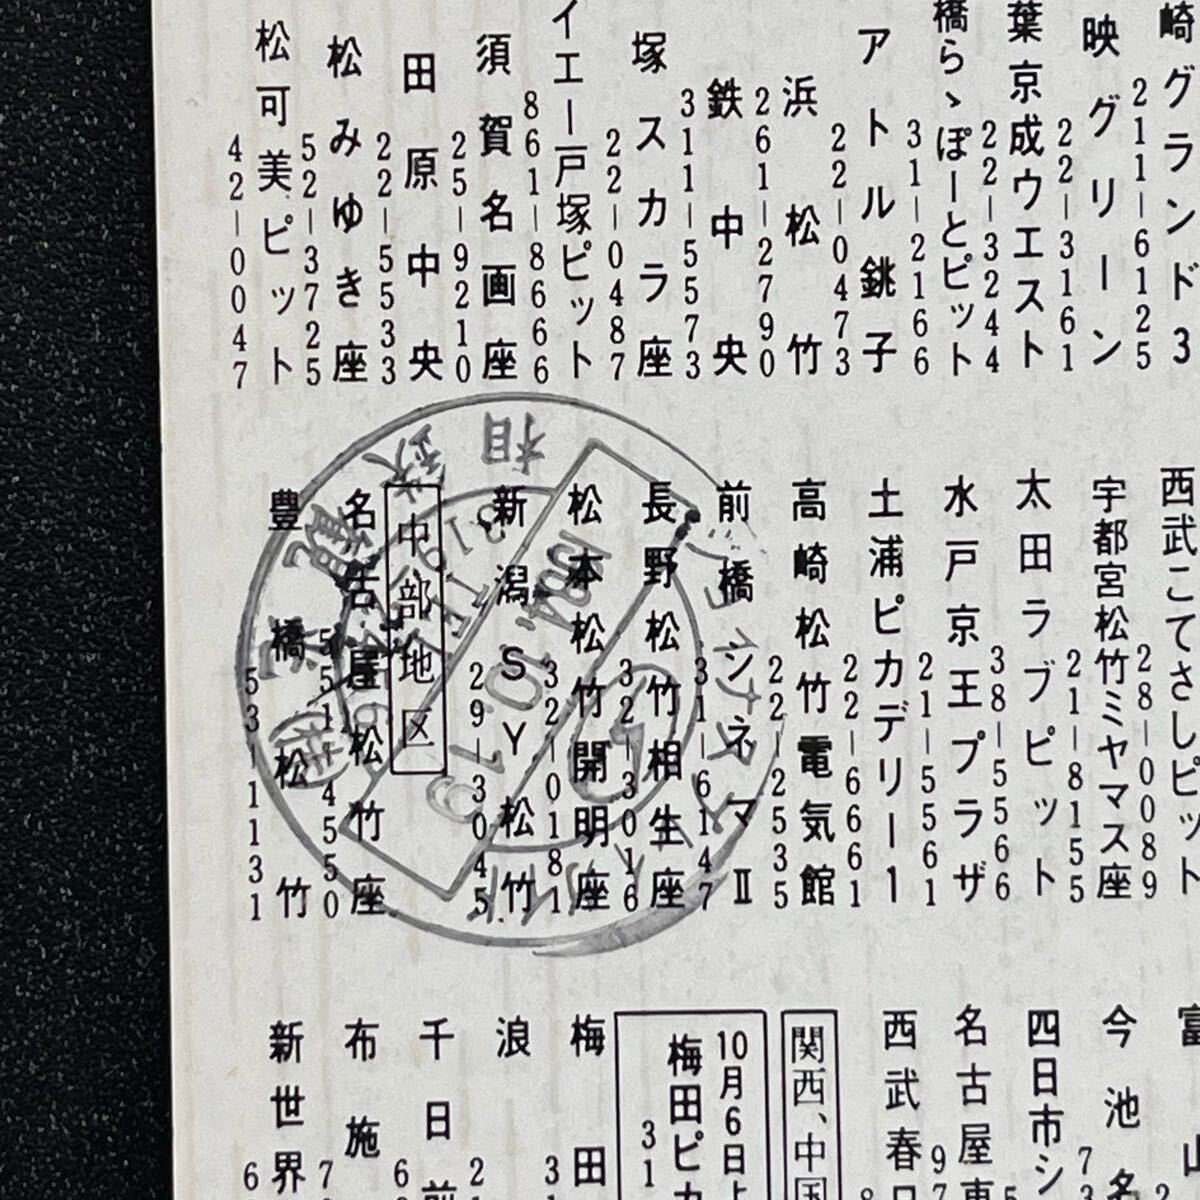 崎グランド3
211-6125
映グリーン
22-3161
葉京成ウエスト
22-3244
橋らゝぽーとピット
31-2166
アトル銚子
22-0473
浜松竹
261-2790
鉄中央
311-5573
塚スカラ座
22-0487
イエー戸塚ピット
861-8666
須賀名画座
25-9210
田原中央
22-5533
松みゆき座
52-3725
松可美ピット
42-0047
西武こてさしピット
28-0089
宇都宮松竹ミヤマス座
21-8155
太田ラブピット
38-5566
水戸京王プラザ
21-5561
土浦ピカデリー1
22-6661
高崎松竹電気館
22-2535
前橋シネマⅡ
31-6147
長野松竹相生座
32-3016
松本松竹開明座
32-0181
新潟SY松竹
29-3045
中部地区
名古屋松竹座
551-4550
豊橋松竹
53-1131
富山
今池名
73
四日市シ
5
名古屋東
97
西武春日
8
関西、中国
10月6日上
梅田ピカ
31
梅田
31
浪
21
千日前
6
布施
7
新世界
6
相鉄
1984.10.19